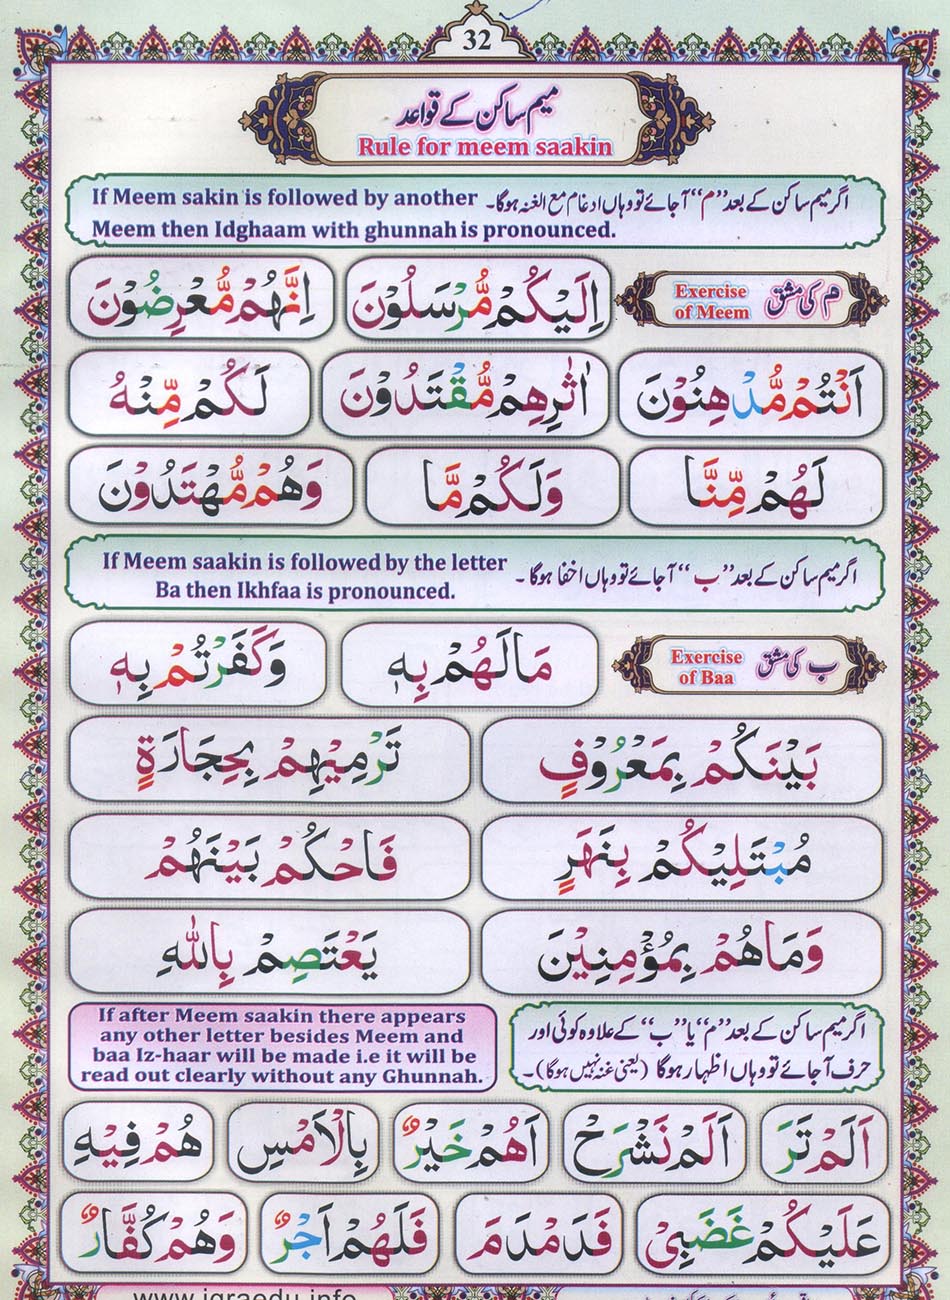 32
میم ساکن کے قواعد
Rule for meem saakin
If Meem sakin is followed by another
Meem then Idghaam with ghunnah is pronounced.
اگر میم ساکن کے بعد ”م“ آجائے تو وہاں ادغام مع الغنہ ہوگا۔
Exercise
of Meem
م کی مشق
اِلَيْكُمْ مُّرْسَلُوْنَ
اِنَّهُمْ مُّعْرِضُوْنَ
اَنْتُمْ مُّدْهِنُوْنَ
اٰثٰرِهِمْ مُّقْتَدُوْنَ
لَكُمْ مِّنْهُ
لَهُمْ مِّنَّا
وَلَكُمْ مَّا
وَهُمْ مُّهْتَدُوْنَ
If Meem saakin is followed by the letter
Ba then Ikhfaa is pronounced.
اگر میم ساکن کے بعد ”ب“ آجائے تو وہاں اخفا ہوگا۔
Exercise
of Baa
ب کی مشق
مَالَهُمْ بِهٖ
وَكَفَرْتُمْ بِهٖ
بَيْنَكُمْ بِمَعْرُوْفٍ
تَرْمِيْهِمْ بِحِجَارَةٍ
مُبْتَلِيْكُمْ بِنَهَرٍ
فَاحْكُمْ بَيْنَهُمْ
وَمَاهُمْ بِمُؤْمِنِيْنَ
يَعْتَصِمْ بِاللّٰهِ
If after Meem saakin there appears
any other letter besides Meem and
baa Iz-haar will be made i.e it will be
read out clearly without any Ghunnah.
اگر میم ساکن کے بعد ”م“ یا ”ب“ کے علاوہ کوئی اور
حرف آجائے تو وہاں اظہار ہوگا (یعنی غنہ نہیں ہوگا)۔
اَلَمْ تَرَ
اَلَمْ نَشْرَحْ
اَهُمْ خَيْرٌ
بِالْاَمْسِ
هُمْ فِيْهِ
عَلَيْكُمْ غَضَبِيْ
فَدَمْدَمَ
فَلَهُمْ اَجْرٌ
وَهُمْ كُفَّارٌ
www.iqraedu.info